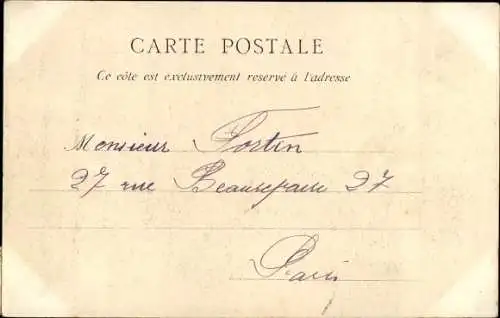 CARTE POSTALE
Ce côte est exclusivement reservé à l'adresse
Monsieur Fortin
27 rue Beaurepaire 27
Paris